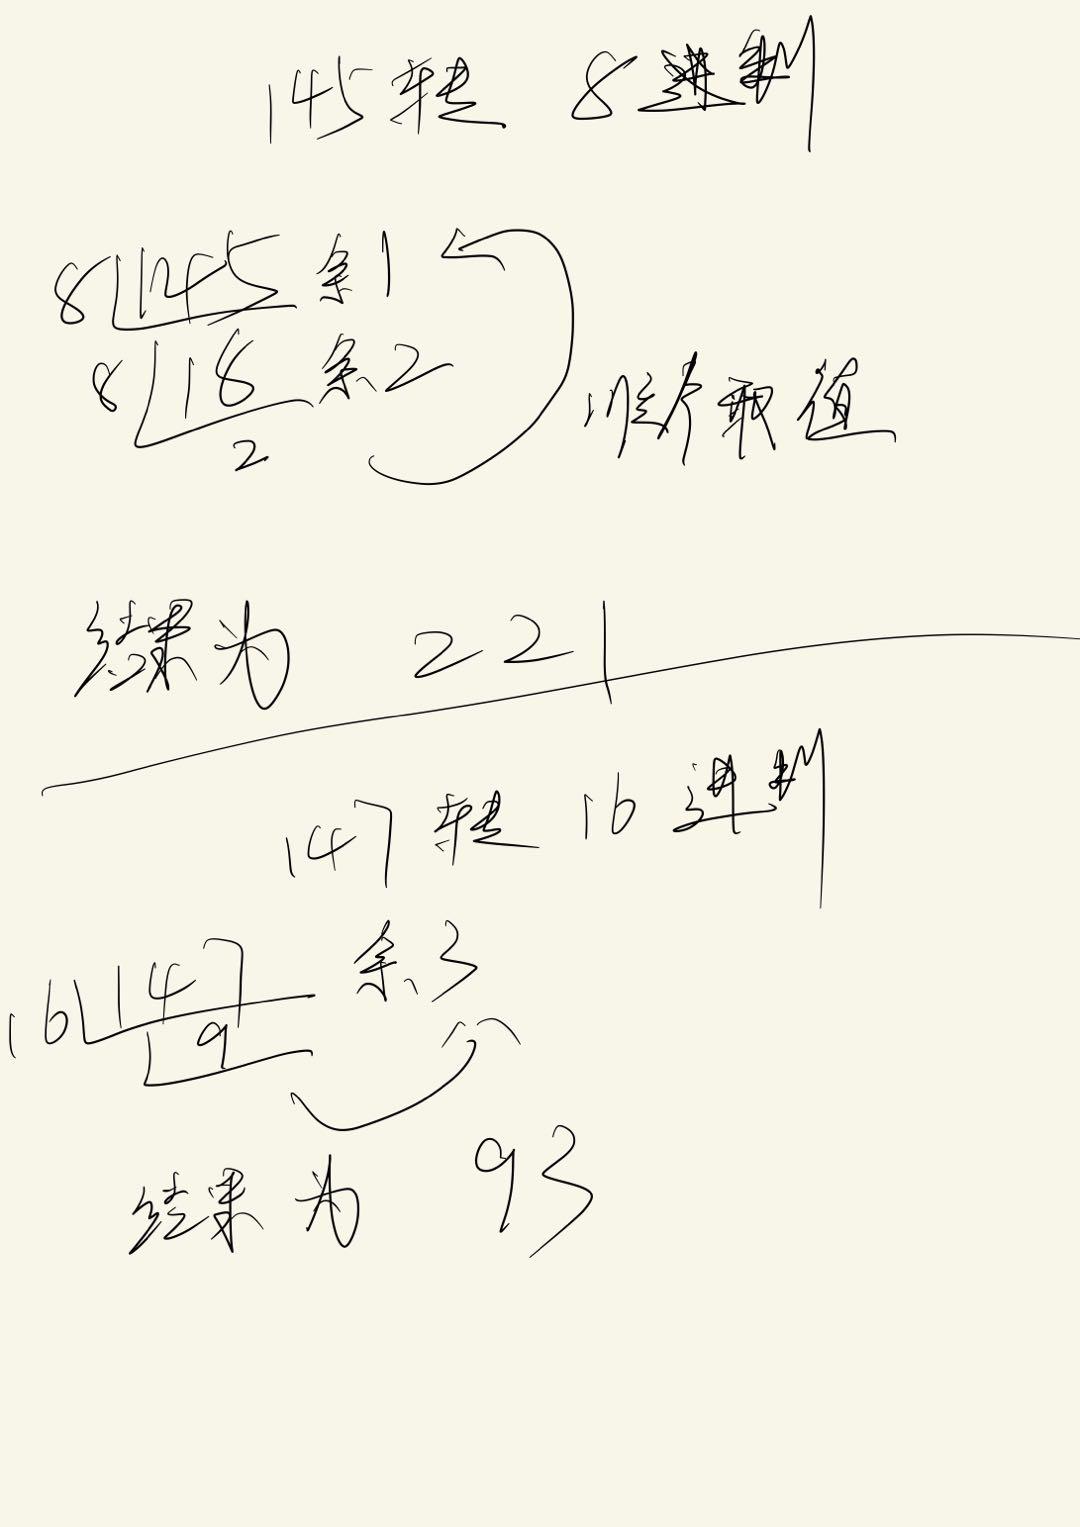 145转 8进制
8 145 余1
8 18 余2
2
顺序取值
结果为 221
147 转 16 进制
16 147 余3
9
结果为 93